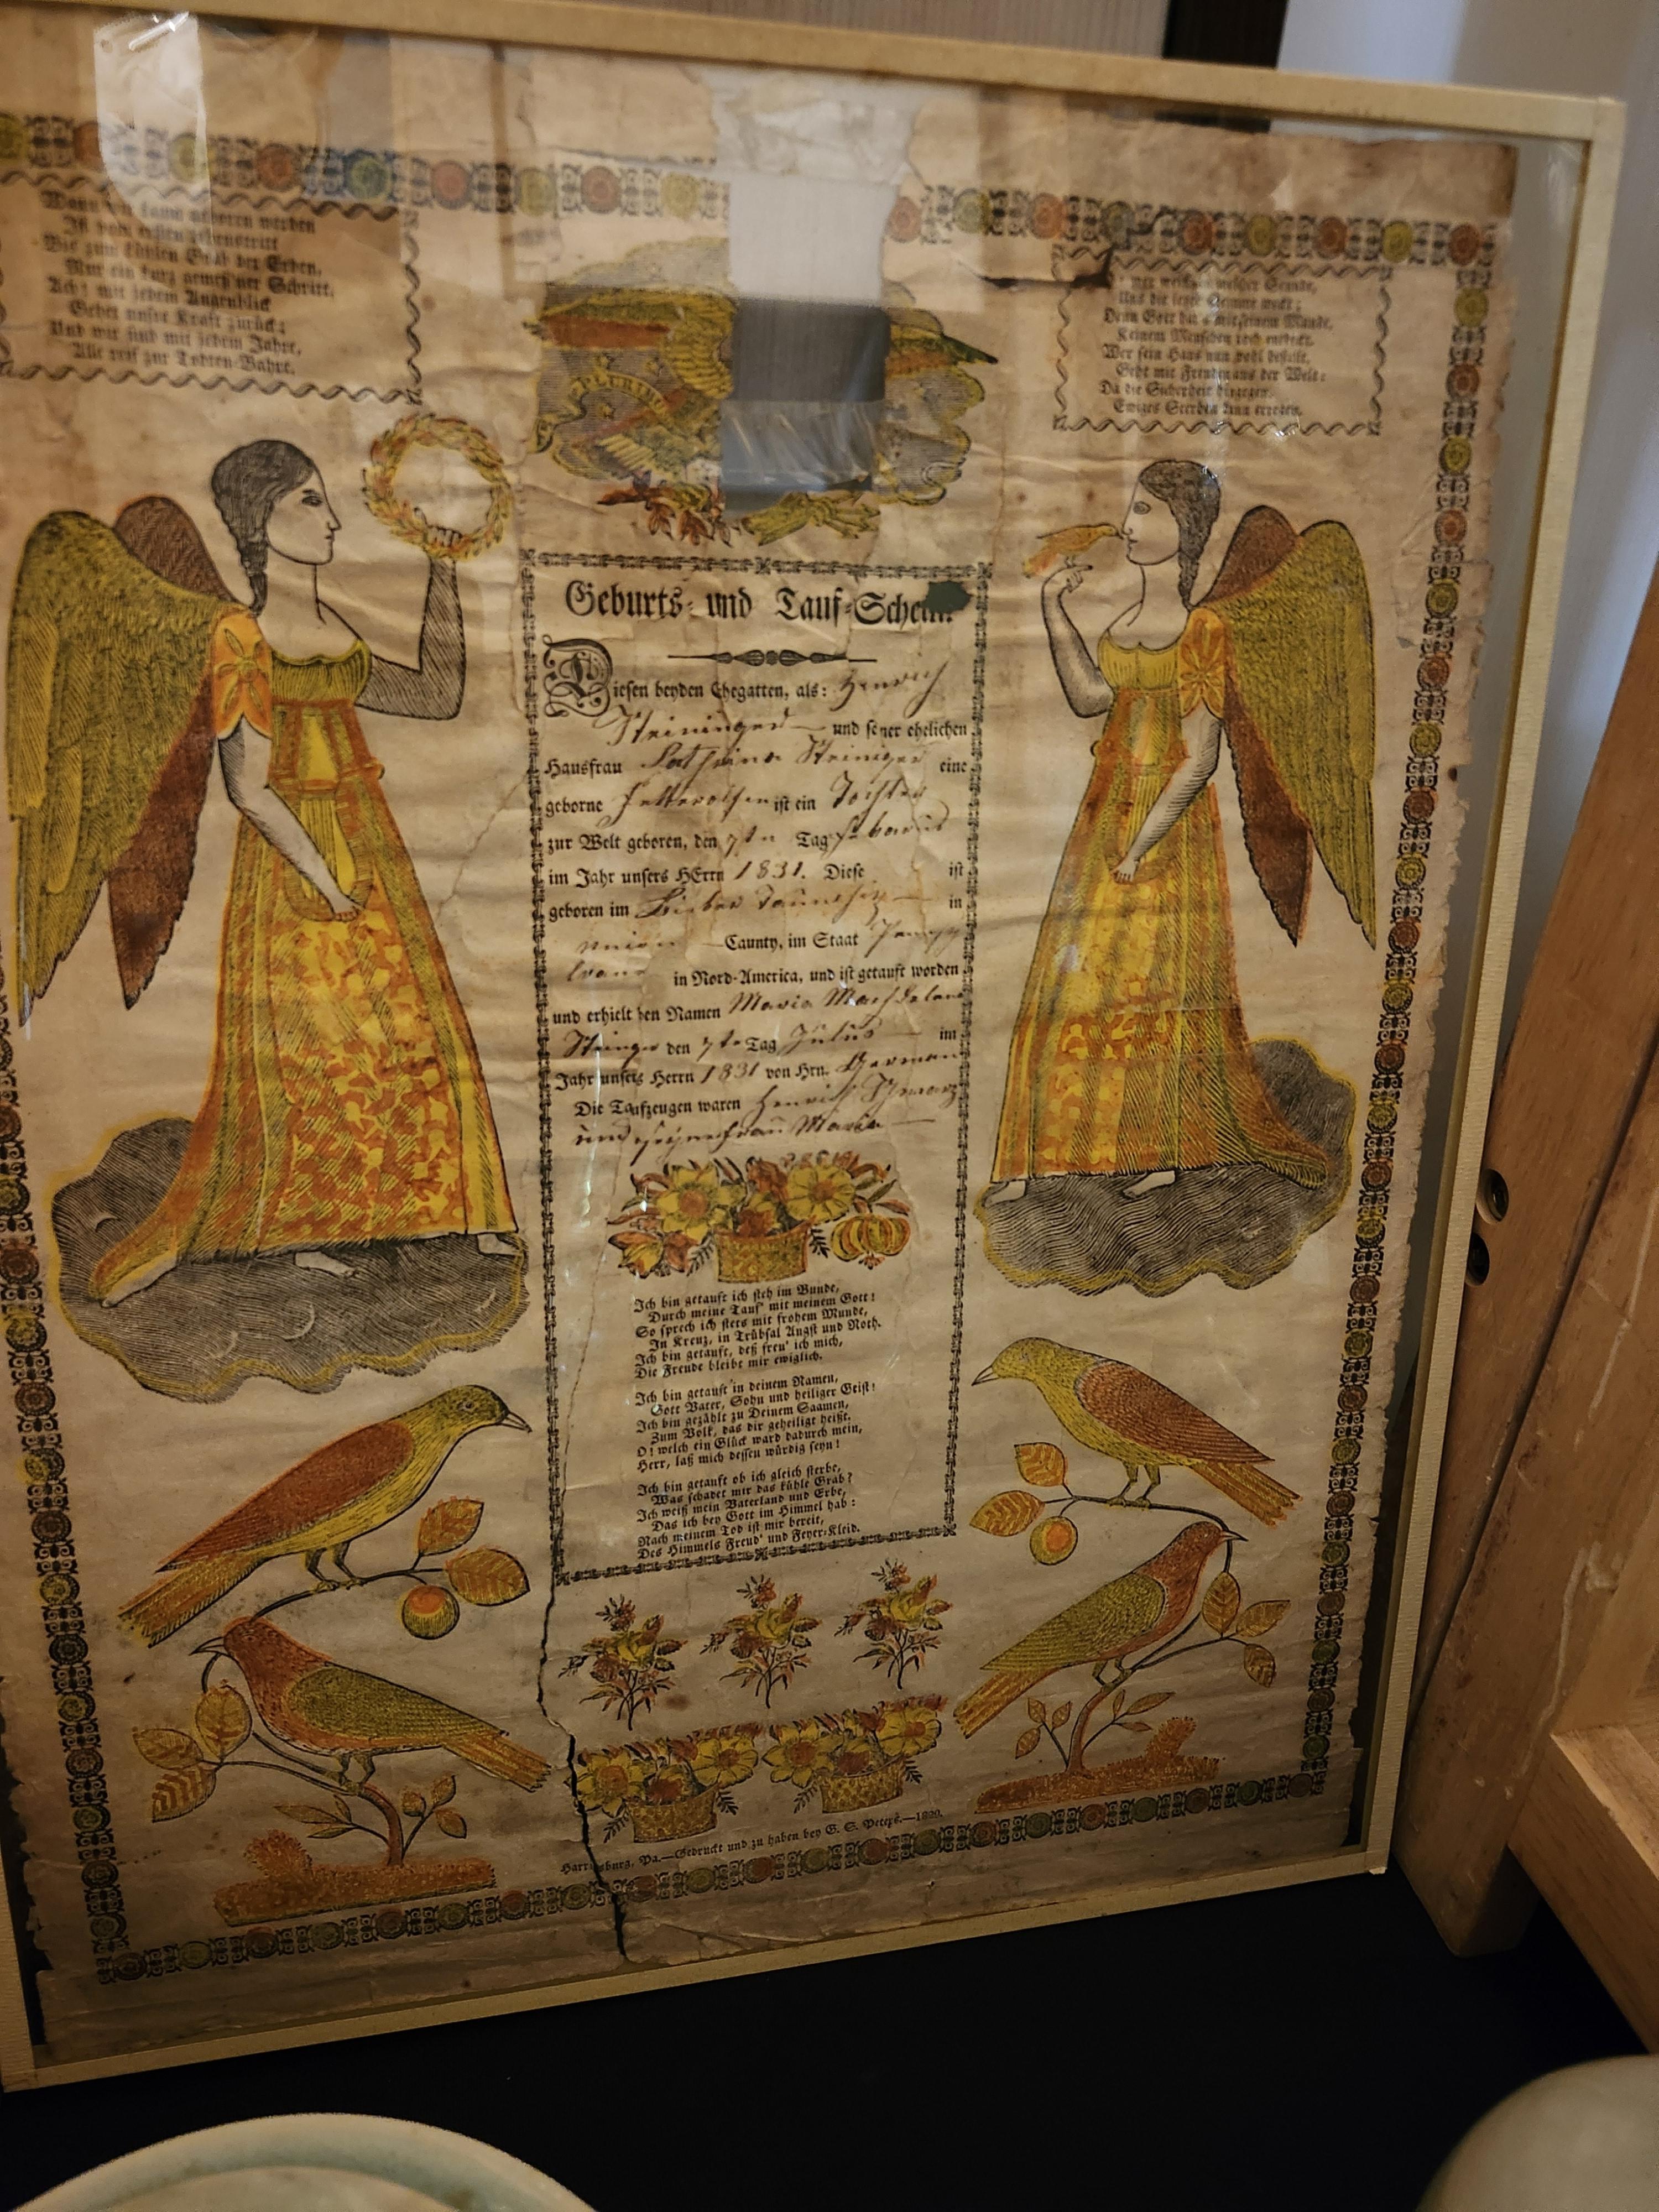 kaum geboren werden
Ist vom ersten Lebenstritt
Bis zum kühlen Grab der Erden,
Nur ein kurz gemeß'ner Schritt.
Ach! mit jedem Augenblick
Gehet unsre Kraft zurück;
Und wir sind mit jedem Jahre,
Allt reif zur Todten-Bahre.
PLURIBU
welcher Stunde,
Uns die letzte Stimme weckt;
Denn Gott hat's mit seinem Munde,
Keinem Menschen noch entdeckt.
Wer sein Haus nun wohl bestellt,
Geht mit Freuden aus der Welt:
Da die Sicherheit hingegen,
Ewiges Sterben kann erregen.
Geburts- und Tauf-Schein.
Diesen beyden Ehegatten, als: Henrich
Steininger und seiner ehelichen
Hausfrau Catharina Steininger eine
geborne ist ein Tochter
zur Welt geboren, den 7te Tag Februarius
im Jahr unsers HErrn 1831. Diese ist
geboren im Taunschip in
union Caunty, im Staat Pensyl
vani in Nord-America, und ist getauft worden
und erhielt den Namen Maria
den 7te Tag Julius im
Jahr unsers Herrn 1831 von Hrn. German
Die Taufzeugen waren Henrich Schwarz
und seine frau Maria
Ich bin getauft ich steh im Bunde,
Durch meine Tauf' mit meinem Gott!
So sprech ich stets mit frohem Munde,
In Kreuz, in Trübsal Angst und Noth.
Ich bin getauft, deß freu' ich mich,
Die Freude bleibt mir ewiglich.
Ich bin getauft in deinem Namen,
Gott Vater, Sohn und heiliger Geist!
Ich bin gezählt zu Deinem Saamen,
Zum Volk, das dir geheiligt heißt.
O! welch ein Glück ward dadurch mein,
Herr, laß mich dessen würdig seyn!
Ich bin getauft ob ich gleich sterbe,
Was schadet mir das kühle Grab?
Ich weiß mein Vaterland und Erbe,
Das ich bey Gott im Himmel hab:
Nach meinem Tod ist mir bereit,
Des Himmels Freud' und Feyer-Kleid.
Harrisburg, Pa.—Gedruckt und zu haben bey G. S. Peters.